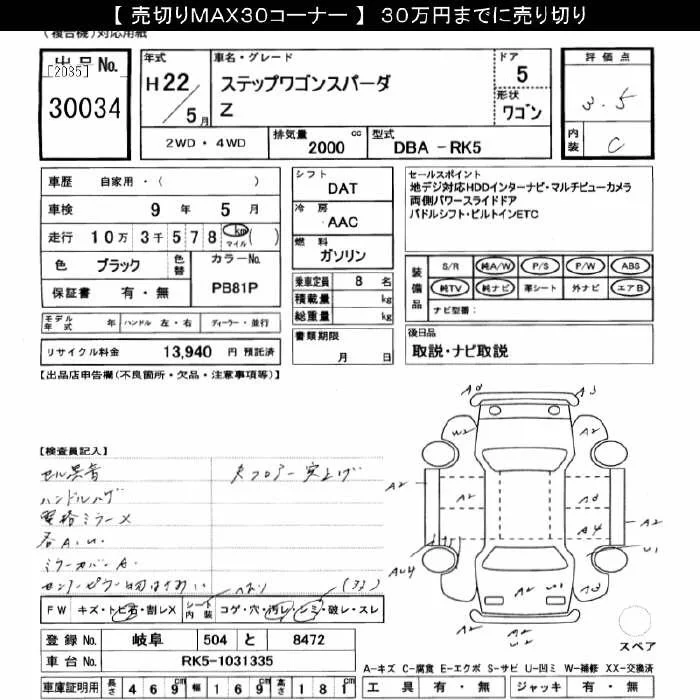 【 売切りMAX30コーナー 】 30万円までに売り切り
(複合機)対応用紙
出品No.
[2035]
30034
年式
H 22 / 5 月
車名・グレード
ステップワゴンスパーダ
Z
ドア
5
形状
ワゴン
評価点
3.5
内装
C
2WD・4WD
排気量 cc
2000
型式
DBA -RK5
車歴 自家用・( )
車検 9 年 5 月
走行 10万 3千 5 7 8 km マイル ( )
色 ブラック 色替
カラーNo.
PB81P
保証書 有・無
シフト
DAT
冷房
AAC
燃料
ガソリン
乗車定員 8 名
積載量 kg
総重量 kg
セールスポイント
地デジ対応HDDインターナビ・マルチビューカメラ
両側パワースライドドア
パドルシフト・ビルトインETC
装備品
S/R 純A/W P/S P/W ABS
純TV 純ナビ 革シート 外ナビ エアB
ナビ型番:
モデル年式 年 ハンドル 左・右 ディーラー・並行
リサイクル料金 13,940 円 預託済
書類期限
月 日
後日品
取説・ナビ取説
【出品店申告欄(不良箇所・欠品・注意事項等)】
【検査員記入】
セル異音
ハンドルハゲ
電格ミラーX
各A.U.
ミラーカバーA.
フロアー突上げ
FW キズ・トビ石・割レX
シート内装 コゲ・穴・汚レ・シミ・破レ・スレ
A2
W2
A2
A2
A2
A2
A4
A2
U1
AU4
A2
A2
W1
A2
A2
W2
スペア
登録No. 岐阜 504 と 8472
車台No. RK5-1031335
車庫証明用 長さ 469 cm 幅 169 cm 高さ 181 cm
A-キズ C-腐食 E-エクボ S-サビ U-凹ミ W-補修 XX-交換済
工具 有・無 ジャッキ 有・無